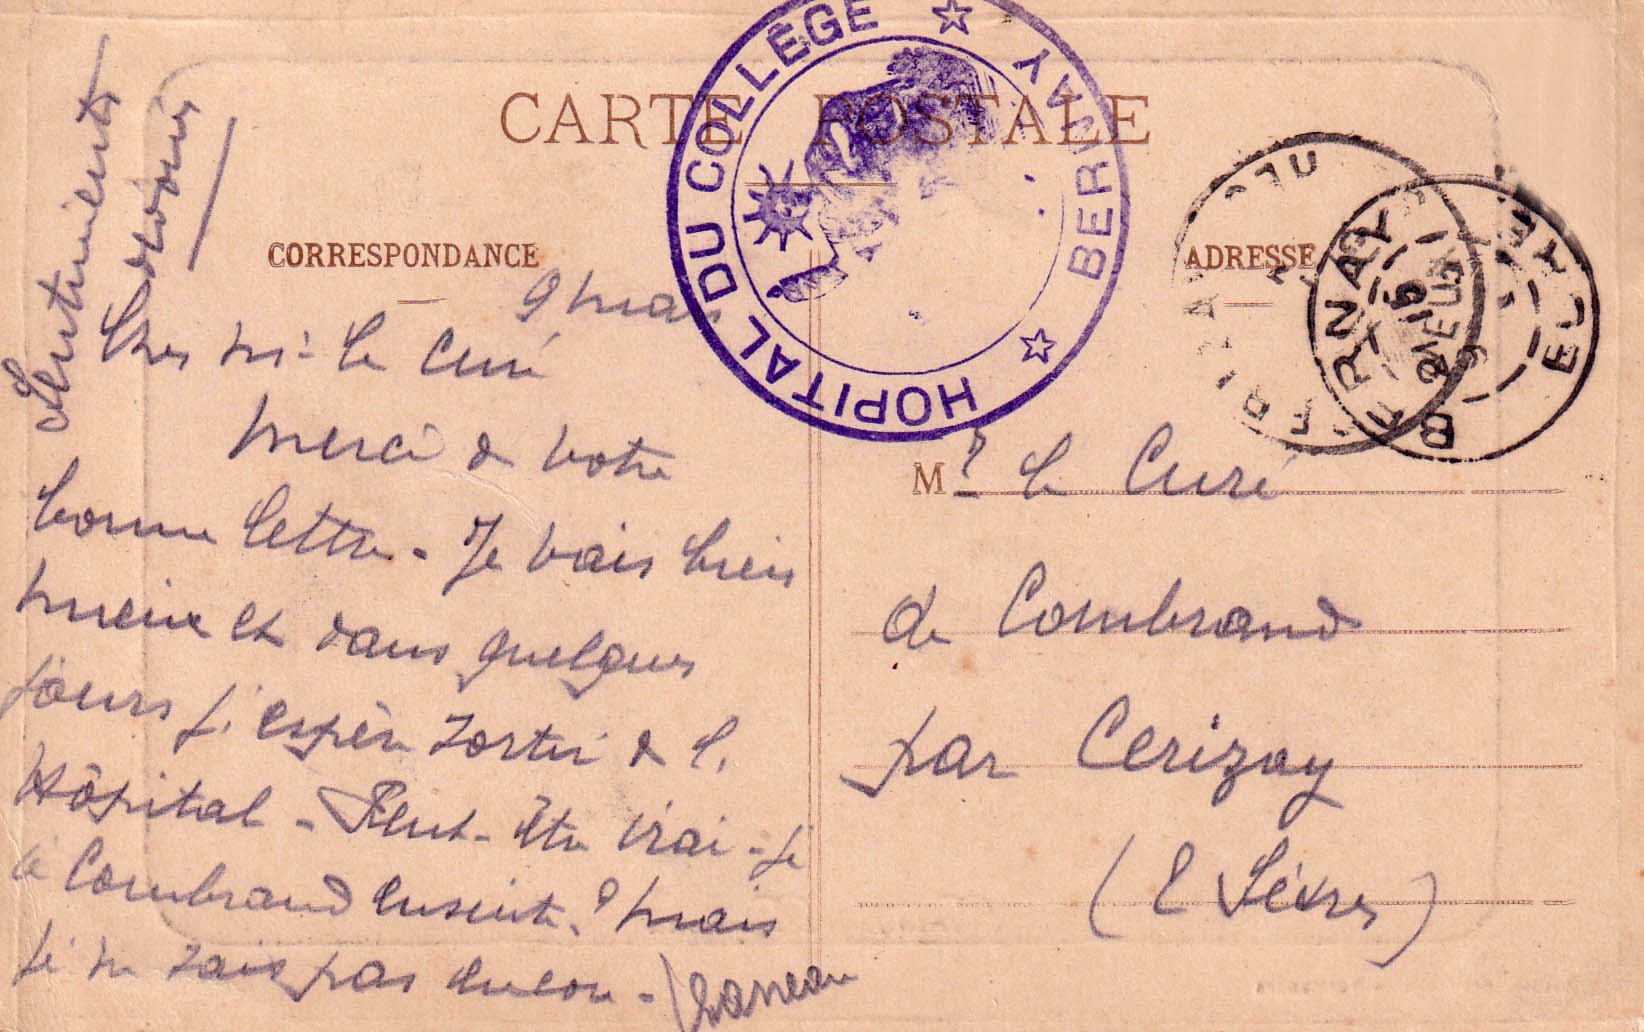 CARTE POSTALE
CORRESPONDANCE
ADRESSE
HOPITAL DU COLLÈGE ☆ BERNAY ☆
BERNAY
EURE
9 mai
Cher Mr le Curé
Merci de votre
bonne lettre - Je vais bien
mieux et dans quelques
jours j'espère sortir de l'
Hôpital - Peut-être irai-je
à Combrand ensuite ? mais
je ne sais pas encore -
Sentiments
Mr le Curé
de Combrand
par Cerizay
(2 Sèvres)